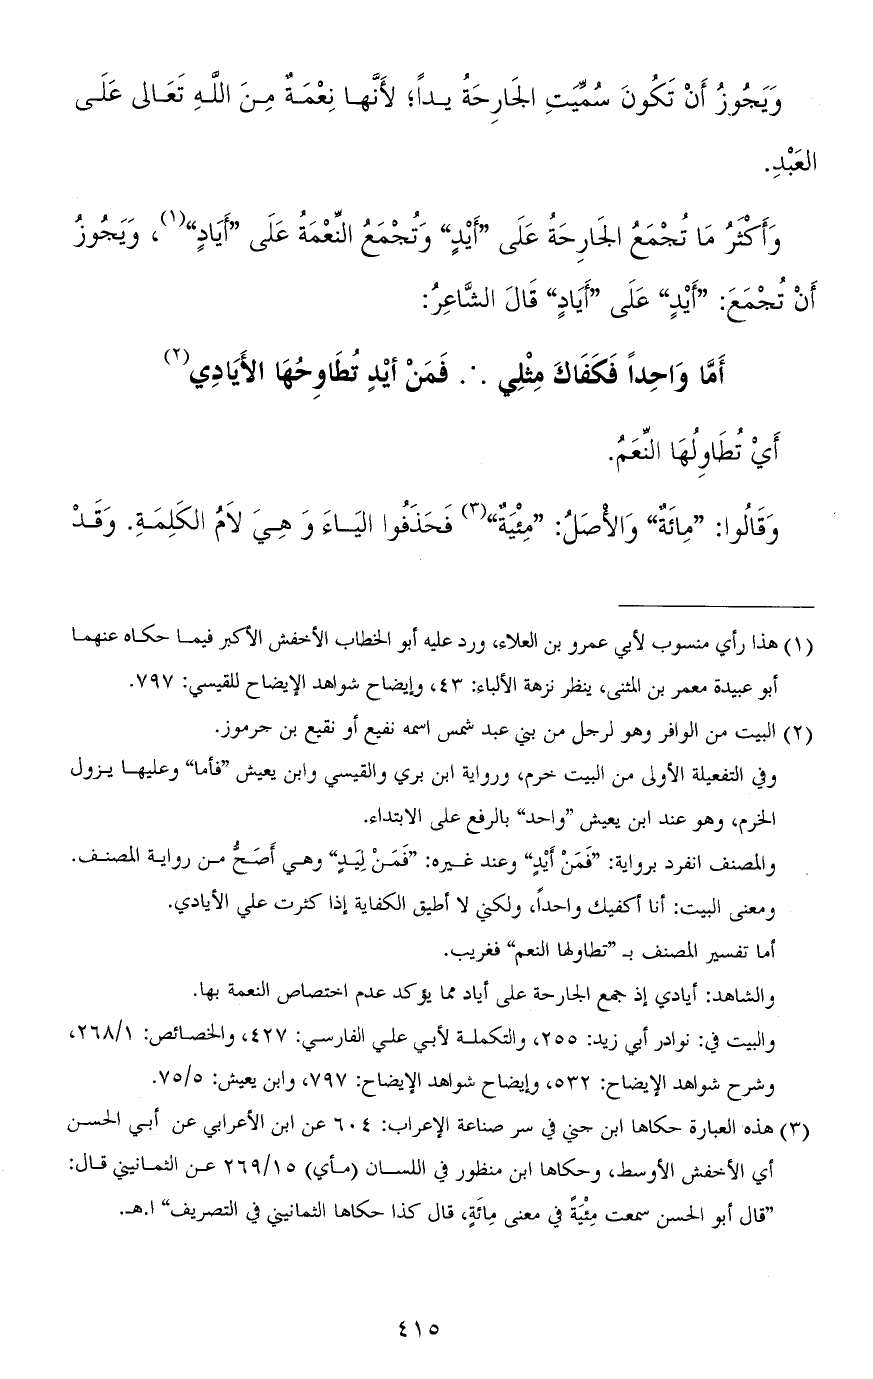 وَيَجُوزُ أَنْ تَكُونَ سُمِّيَتِ الجَارِحَةُ يـداً؛ لأَنَّهـا نِعْمَـةٌ مِـنَ اللَّـهِ تَعَـالى عَلَـى
العَبْدِ.
وَأَكْثَرُ مَا تُجْمَعُ الجَارِحَةُ عَلَى "أَيْدٍ" وَتُجْمَعُ النِّعْمَةُ عَلَى "أَيَادٍ"(١)، وَيَجُوزُ
أَنْ تُجْمَعَ: "أَيْدٍ" عَلَى "أَيَادٍ" قَالَ الشَّاعِرُ:
أَمَّا وَاحِداً فَكَفَاكَ مِثْلِي .∙. فَمَنْ أَيْدٍ تُطَاوِحُهَا الأَيَادِي(٢)
أَيْ تُطَاوِلُهَا النِّعَمُ.
وَقَالُوا: "مِائَةٌ" وَالأَصْلُ: "مِئْيَةٌ"(٣) فَحَذَفُوا اليَـاءَ وَ هِـيَ لاَمُ الكَلِمَـةِ. وَقَـدْ
(١) هذا رأي منسوب لأبي عمرو بن العلاء، ورد عليه أبو الخطاب الأخفش الأكبر فيمـا حكاه عنهمـا
أبو عبيدة معمر بن المثنى، ينظر نزهة الألباء: ٤٣، وإيضاح شواهد الإيضاح للقيسي: ٧٩٧.
(٢) البيت من الوافر وهو لرجل من بني عبد شمس اسمه نفيع أو نقيع بن جرموز.
وفي التفعيلة الأولى من البيت خرم، ورواية ابن بري والقيسي وابن يعيش "فأما" وعليهـا يـزول
الخرم، وهو عند ابن يعيش "واحد" بالرفع على الابتداء.
والمصنف انفرد برواية: "فَمَنْ أَيْدٍ" وعند غـيره: "فَمَـنْ لِيَـدٍ" وهـي أَصَـحُّ مـن روايـة المصنـف.
ومعنى البيت: أنا أكفيك واحداً، ولكني لا أطيق الكفاية إذا كثرت علي الأيادي.
أما تفسير المصنف بـ "تطاولها النعم" فغريب.
والشاهد: أيادي إذ جمع الجارحة على أياد مما يؤكد عدم اختصاص النعمة بها.
والبيت في: نوادر أبي زيد: ٢٥٥، والتكملـة لأبي علـي الفارسـي: ٤٢٧، والخصـائص: ٢٦٨/١،
وشرح شواهد الإيضاح: ٥٣٢، وإيضاح شواهد الإيضاح: ٧٩٧، وابن يعيش: ٧٥/٥.
(٣) هذه العبارة حكاها ابن جني في سر صناعة الإعراب: ٦٠٤ عن ابن الأعرابي عن أبـي الحسـن
أي الأخفـش الأوسـط، وحكاهـا ابن منظور في اللسـان (مـأي) ٢٦٩/١٥ عـن الثمـانيني قـال:
"قال أبو الحسن سمعت مِئْيَةً في معنى مِائَةٍ، قال كذا حكاها الثمانيني في التصريف" ا.هـ.
٤١٥